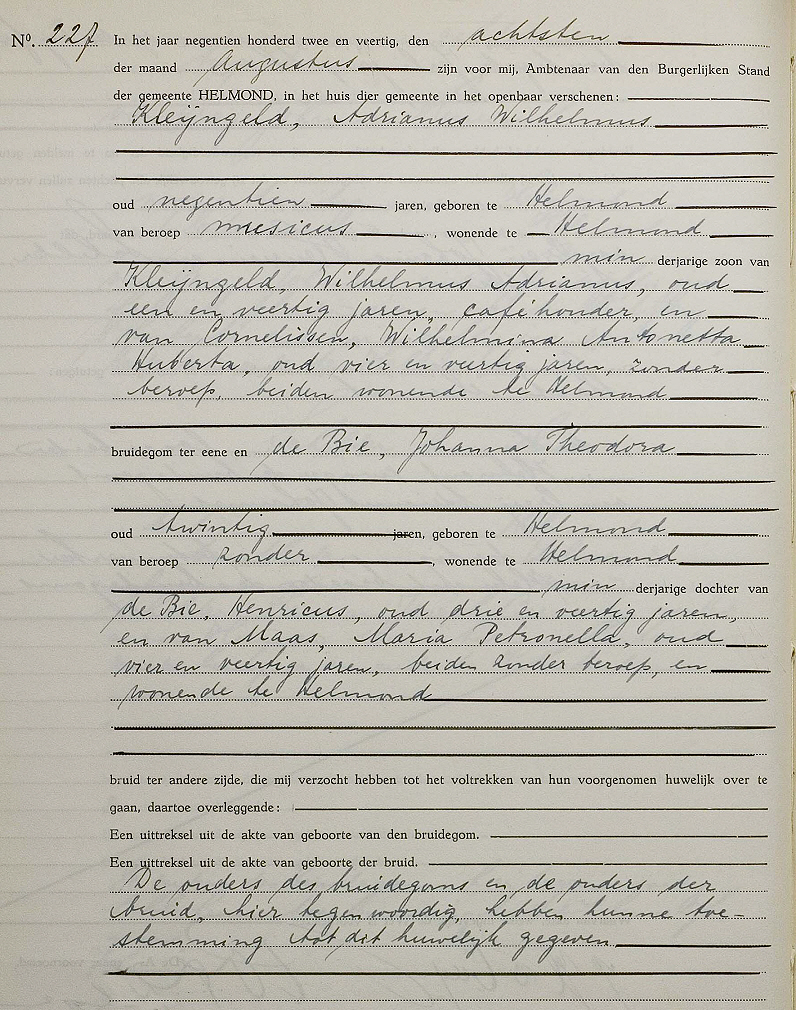 No. 227 In het jaar negentien honderd twee en veertig, den achtsten
der maand Augustus zijn voor mij, Ambtenaar van den Burgerlijken Stand
der gemeente HELMOND, in het huis dier gemeente in het openbaar verschenen:
Kleijngeld, Adrianus Wilhelmus
oud negentien jaren, geboren te Helmond
van beroep musicus, wonende te Helmond
min derjarige zoon van
Kleijngeld, Wilhelmus Adrianus, oud
een en veertig jaren, caféhouder, en
van Cornelissen, Wilhelmina Antonetta
Huberta, oud vier en veertig jaren, zonder
beroep, beiden wonende te Helmond
bruidegom ter eene en de Bie, Johanna Theodora
oud twintig jaren, geboren te Helmond
van beroep zonder, wonende te Helmond
min derjarige dochter van
de Bie, Henricus, oud drie en veertig jaren,
en van Maas, Maria Petronella, oud
vier en veertig jaren, beiden zonder beroep, en
wonende te Helmond
bruid ter andere zijde, die mij verzocht hebben tot het voltrekken van hun voorgenomen huwelijk over te
gaan, daartoe overleggende:
Een uittreksel uit de akte van geboorte van den bruidegom.
Een uittreksel uit de akte van geboorte der bruid.
De ouders des bruidegoms en de ouders der
bruid, hier tegenwoordig, hebben hunne toe-
stemming tot dit huwelijk gegeven